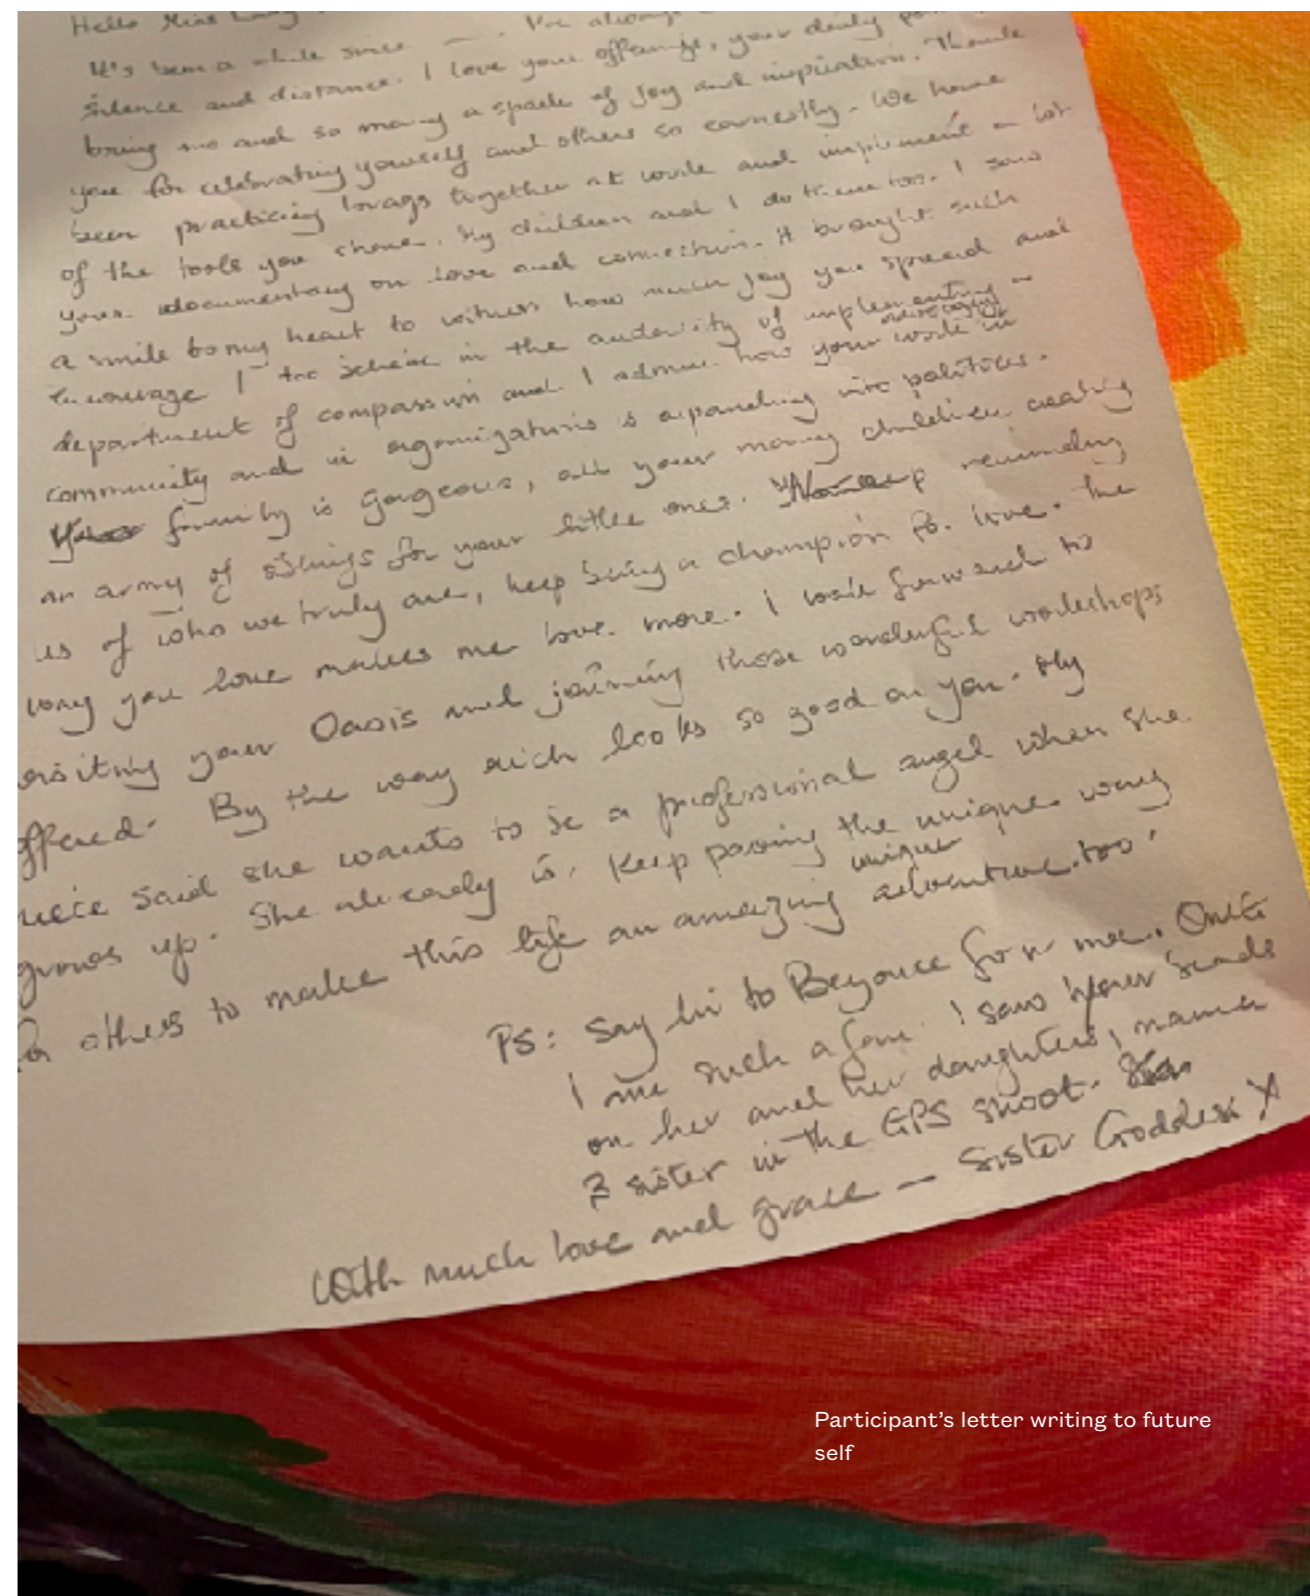 Hello Miss
It's been a while since
silence and distance. I love your offerings, your daily
bring me and so many a spark of joy and inspiration. Thank
you for celebrating yourself and others so earnestly. We have
been practicing together at work and implement a lot
of the tools you share. My children and I do them too. I saw
your documentary on love and connection. It brought such
a smile to my heart to witness how much joy you spread and
encourage. I too in the audacity of implementing a
department of compassion and I admire how your work in
community and in organizations is expanding into politics.
family is gorgeous, all your many children creating
an army of siblings for your little ones. Keep reminding
us of who we truly are, keep being a champion for love. The
way you love makes me love more. I look forward to
visiting your Oasis and joining those wonderful workshops
offered. By the way rich looks so good on you. My
niece said she wants to be a professional angel when she
grows up. She already is. Keep paving the unique way
unique
for others to make this life an amazing adventure too.
PS: Say hi to Beyonce for me. Quite
I am such a fan. I saw your
on her and her daughters, mama
& sister in the GPS shoot.
With much love and grace — Sister Goddess X
Participant's letter writing to future
self